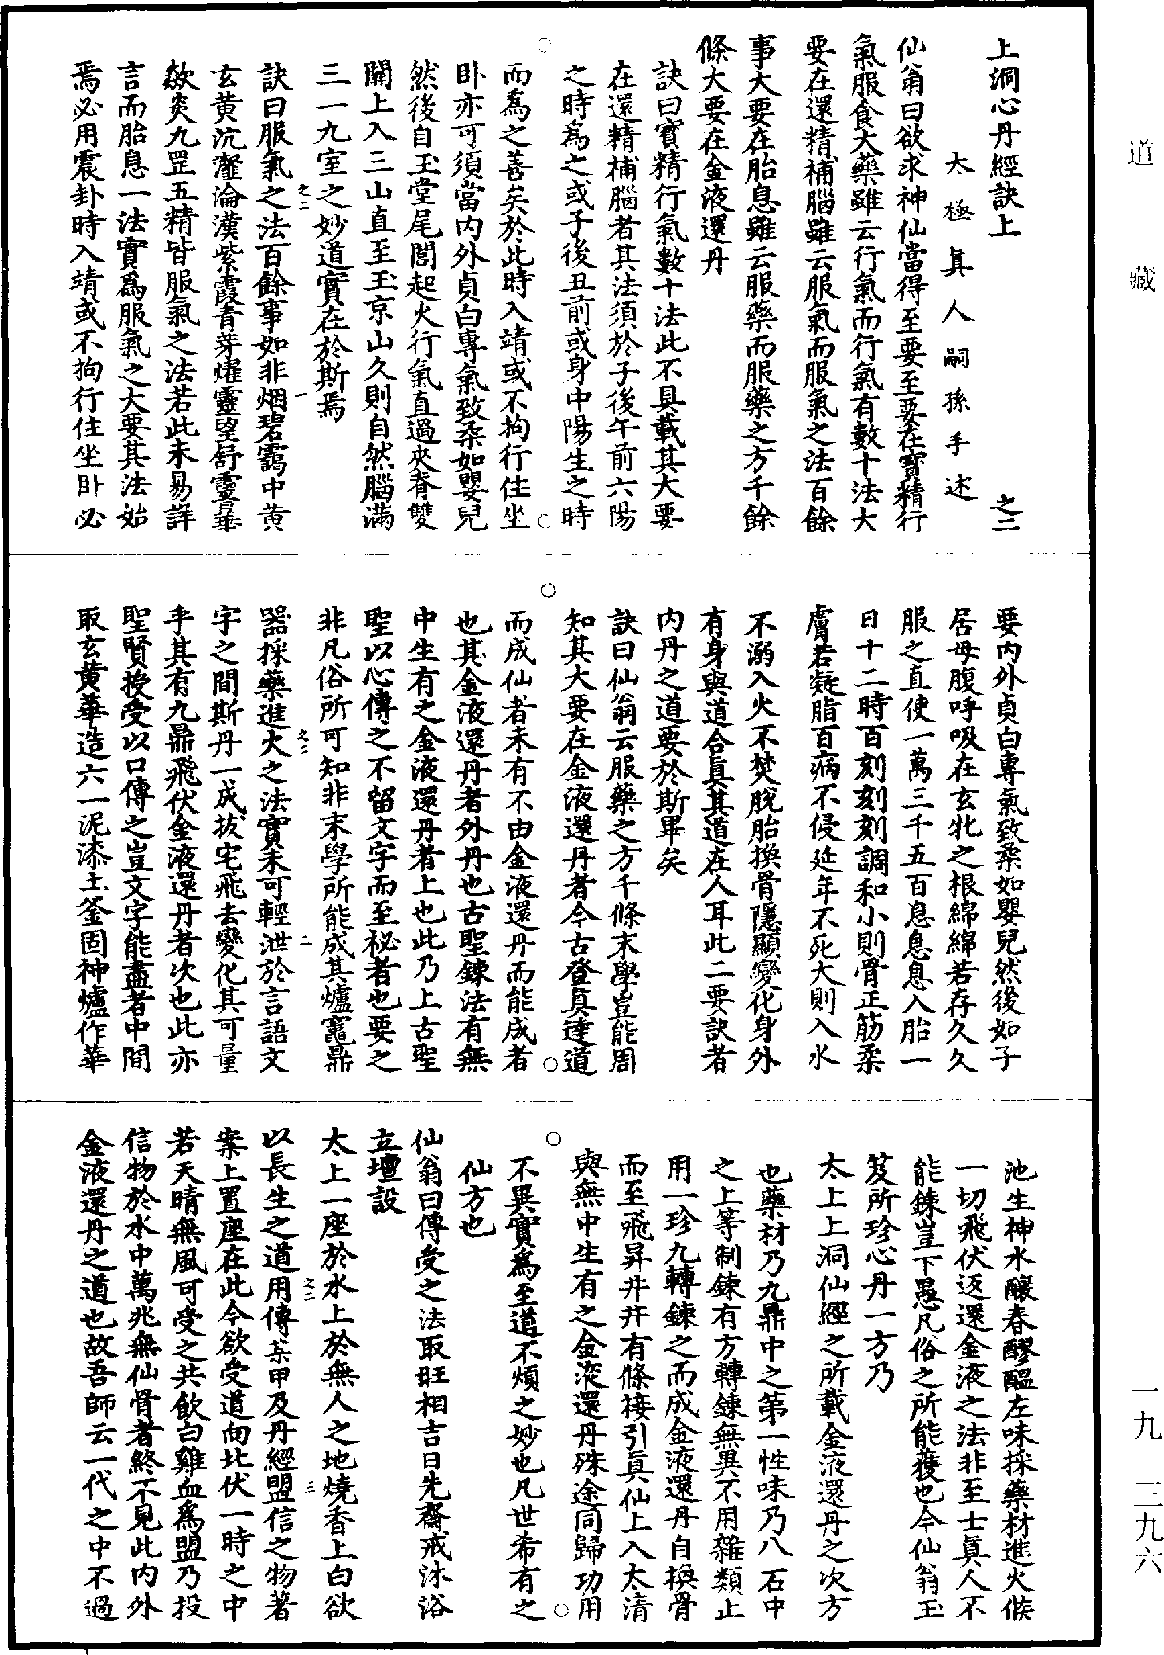 道藏
上洞心丹經訣上　之二
太極真人嗣孫手述
仙翁曰欲求神仙當得至要至要在寶精行
氣服食大藥雖云行氣而行氣有數十法大
要在還精補腦雖云服氣而服氣之法百餘
事大要在胎息雖云服藥而服藥之方千餘
條大要在金液還丹
訣曰寶精行氣數十法此不具載其大要
在還精補腦者其法須於子後午前六陽
之時為之或子後丑前或身中陽生之時
而為之善矣於此時入靖或不拘行住坐
卧亦可須當內外貞白專氣致柔如嬰兒
然後自玉堂尾閭起火行氣直過夾脊雙
關上入三山直至玉京山久則自然腦滿
三一九室之妙道實在於斯焉
之二　一
訣曰服氣之法百餘事如非烟碧靄中黃
玄黃沆瀣淪漢紫霞青芽燿靈望舒靈華
歘炎九罡五精皆服氣之法若此未易詳
言而胎息一法實為服氣之大要其法始
焉必用震卦時入靖或不拘行住坐卧必
要內外貞白專氣致柔如嬰兒然後如子
居母腹呼吸在玄牝之根綿綿若存久久
服之直使一萬三千五百息息息入胎一
日十二時百刻刻刻調和小則骨正筋柔
膚若凝脂百病不侵延年不死大則入水
不溺入火不焚脫胎換骨隱顯變化身外
有身與道合真其道在人耳此二要訣者
內丹之道要於斯畢矣
訣曰仙翁云服藥之方千條末學豈能周
知其大要在金液還丹者今古登真達道
而成仙者未有不由金液還丹而能成者
也其金液還丹者外丹也古聖鍊法有無
中生有之金液還丹者上也此乃上古聖
聖以心傳之不留文字而至祕者也要之
非凡俗所可知非末學所能成其爐竈鼎
之二　二
器採藥進火之法實未可輕泄於言語文
字之間斯丹一成拔宅飛去變化其可量
乎其有九鼎飛伏金液還丹者次也此亦
聖賢授受以口傳之豈文字能盡者中間
取玄黃華造六一泥漆土釜固神爐作華
池生神水釀春醪醞左味採藥材進火候
一切飛伏返還金液之法非至士真人不
能鍊豈下愚凡俗之所能穫也今仙翁玉
笈所珍心丹一方乃
太上上洞仙經之所載金液還丹之次方
也藥材乃九鼎中之第一性味乃八石中
之上等制鍊有方轉鍊無異不用雜類止
用一珍九轉鍊之而成金液還丹自換骨
而至飛昇井井有條接引真仙上入太清
與無中生有之金液還丹殊途同歸功用
不異實為至道不煩之妙也凡世希有之
仙方也
仙翁曰傳受之法取旺相吉日先齋戒沐浴
立壇設
太上一座於水上於無人之地燒香上白欲
之二　三
以長生之道用傳某甲及丹經盟信之物著
案上置座在此今欲受道向北伏一時之中
若天晴無風可受之共飲白雞血為盟乃投
信物於水中萬兆無仙骨者終不見此內外
金液還丹之道也故吾師云一代之中不過
一九　三九六